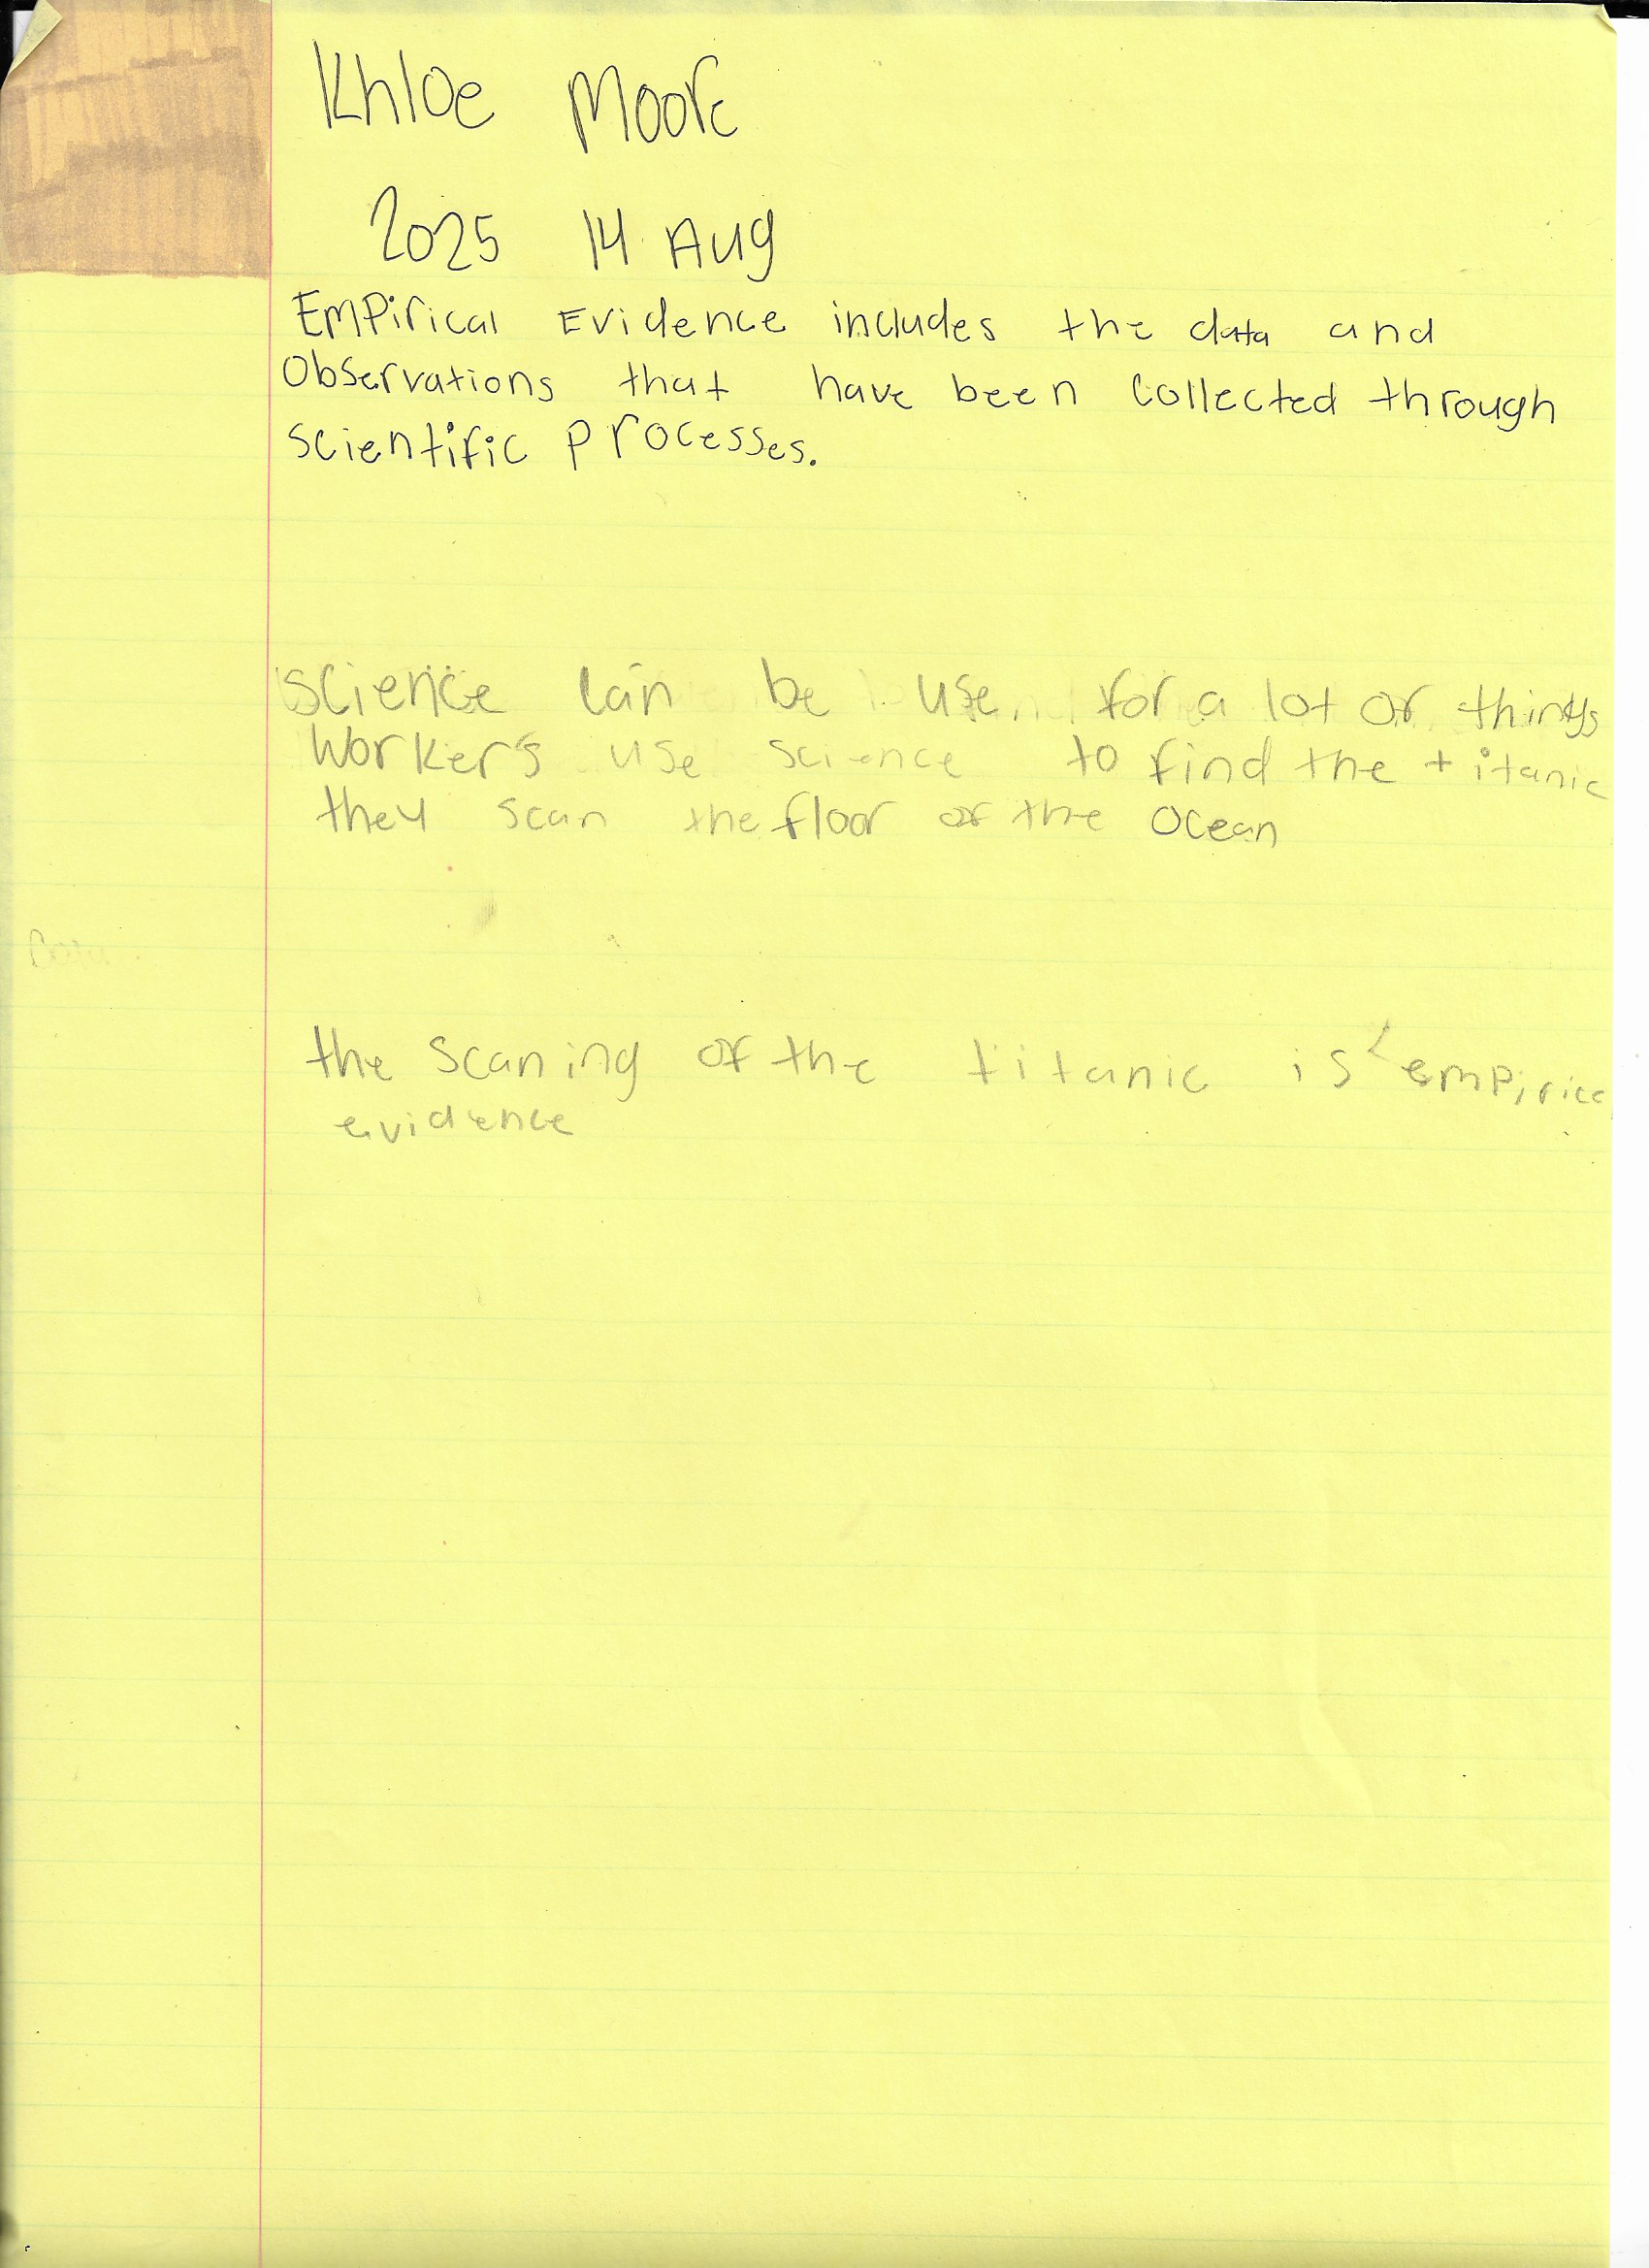 Khloe Moore
2025 14 Aug
Empirical Evidence includes the data and
Observations that have been collected through
scientific processes.
science can be use for a lot of things
workers use science to find the titanic
they scan the floor of the ocean
the scaning of the titanic is empirical
evidence